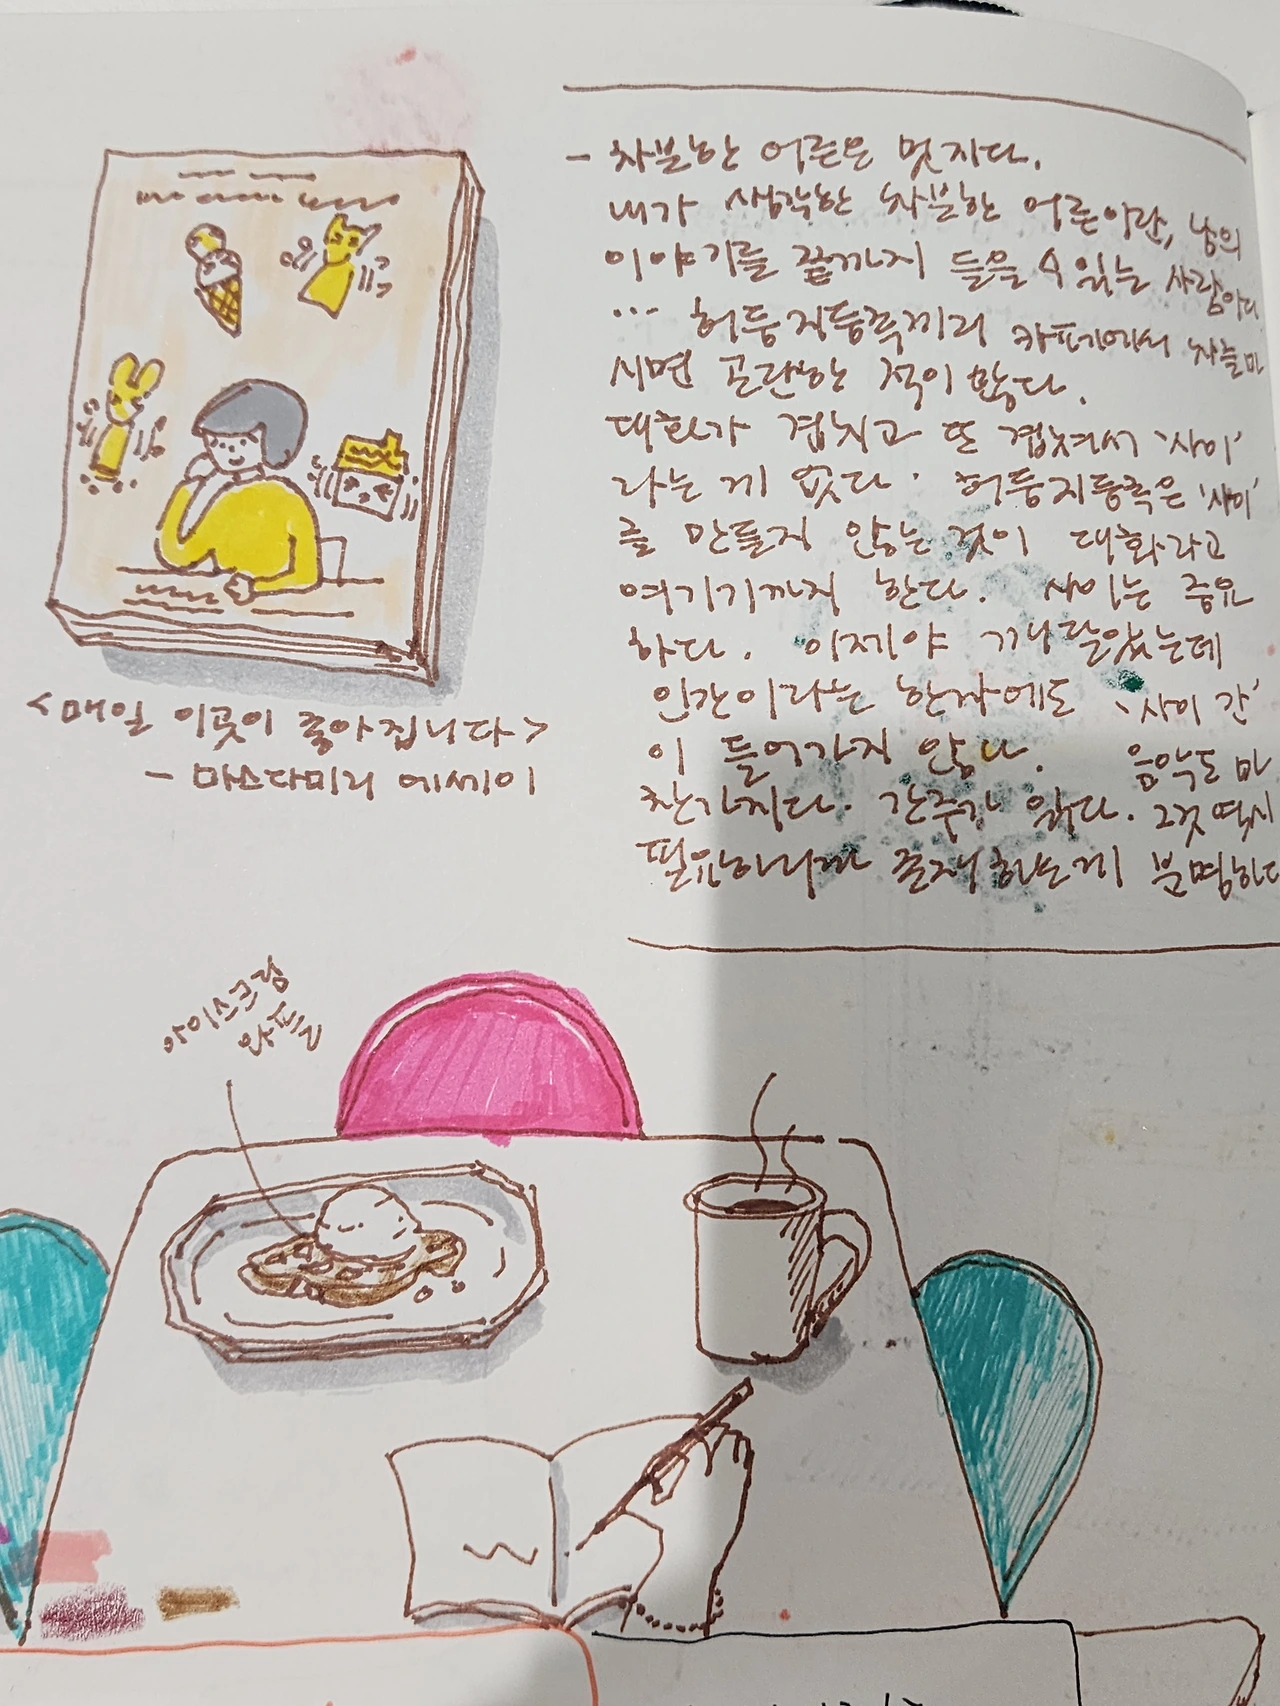 - 차분한 어른은 멋지다.
내가 생각한 차분한 어른이란, 남의
이야기를 끝까지 들을 수 있는 사람이다
... 허둥지둥족끼리 카페에서 차를 마
시면 곤란한 적이 많다.
대화가 겹치고 또 겹쳐서 '사이'
라는 게 없다. 허둥지둥족은 '사이'
를 만들지 않는 것이 대화라고
여기기까지 한다. 사이는 중요
하다. 이제야 깨달았는데
인간이라는 한자에도 '사이 간'
이 들어가지 않나. 음악도 마
찬가지다. 간주가 있다. 그것 역시
필요하니까 존재하는게 분명하다
<매일 이곳이 좋아집니다>
- 마스다미리 에세이
아이스크림
와플